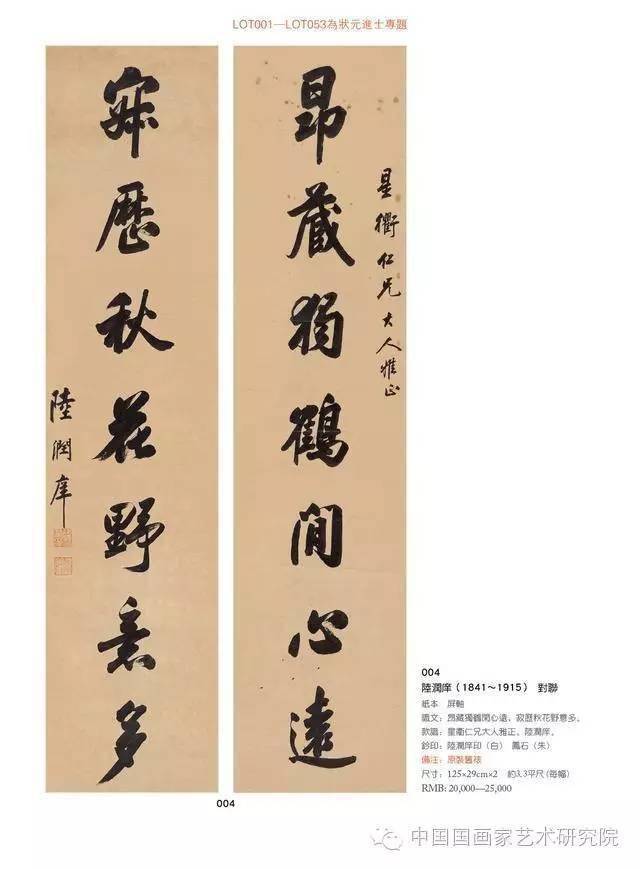 LOT001—LOT053為狀元進士專題
昂藏獨鶴閒心遠
星衢仁兄大人雅正
寂歷秋花野意多
陸潤庠
004
004
陸潤庠（1841～1915） 對聯
紙本 屏軸
識文：昂藏獨鶴閒心遠，寂歷秋花野意多。
款識：星衢仁兄大人雅正。陸潤庠。
鈐印：陸潤庠印（白） 鳳石（朱）
備注：原裝舊裱
尺寸：125×29cm×2 約3.3平尺（每幅）
RMB: 20,000—25,000
中国国画家艺术研究院